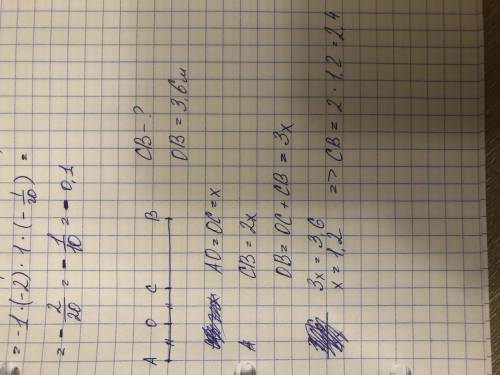 = -1·(-2)·1·(-1/20) =
= -2/20 = -1/10 = -0,1
A O C B CB - ?
OB = 3,6 м
AO = OC = x
CB = 2x
OB = OC + CB = 3x
3x = 3,6
x = 1,2 => CB = 2 · 1,2 = 2,4